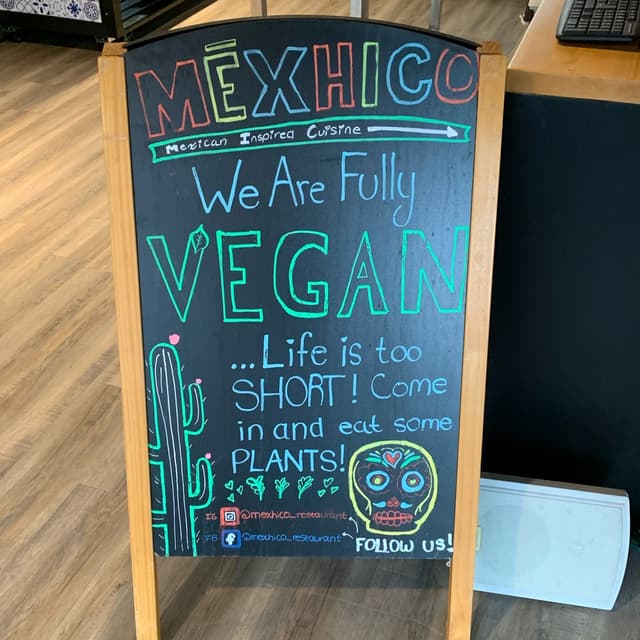 MĒXHICO
Mexican Inspired Cuisine
We Are Fully
VEGAN
...Life is too
SHORT! Come
in and eat some
PLANTS!
IG @mexhico_restaurant
FB @mexhico_restaurant
FOLLOW US!